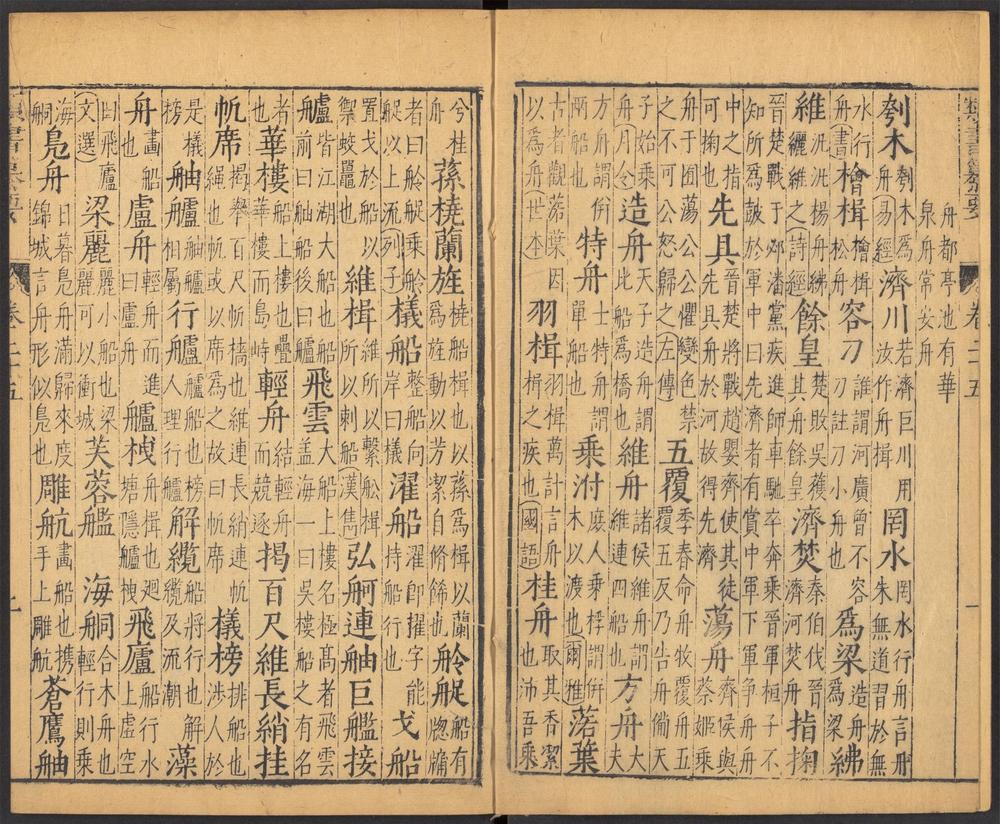 類書纂要 卷二十五 一
舟都亭池有華
泉舟常安舟
刳木 刳木爲舟易經 濟川 若濟巨川用汝作舟楫 罔水 罔水行舟言舟朱無道習於無
水行舟書 檜楫 檜楫松舟 容刀 誰謂河廣曾不容刀註刀小舟也 爲梁 造舟爲梁 紼
維 汎汎揚舟紼纚維之詩經 餘皇 楚敗吳獲其舟餘皇 濟焚 秦伯伐晉濟河焚舟 指掬
晉楚戰于邲潘黨疾進師車馳卒奔乘晉軍桓子不知所爲鼓於軍中曰先濟者有賞中軍下軍争舟舟
中之指可掬也 先具 晉楚將戰趙嬰齊使其徒先具舟於河故得先濟 蕩舟 齊侯與蔡姬乘
舟于囿蕩公公懼變色禁之不可公怒歸之左傳 五覆 季春命舟牧覆舟五覆五反乃告舟備天
子始乘舟月令 造舟 天子造舟謂比船爲橋也 維舟 諸侯維舟謂維連四船也 方舟 大夫
方舟謂併兩船也 特舟 士特舟謂單船也 乘泭 庶人乘桴謂併木以渡也爾雅 落葉
古者觀落葉因以爲舟世本 羽楫 羽楫萬計言舟楫之疾也國語 桂舟 取其香潔也沛吾乘
兮桂舟 蓀橈蘭旌 橈船楫也以蓀爲楫以蘭爲旌動以芳潔自脩餙也 舲艇 船有牕牖
者曰舲乘舲艇以上流列子 檥船 整船向岸曰檥 濯船 濯卽擢字能持船行也 戈船
置戈於船以禦蛟鼉也 維楫 維所以繫舩楫所以刺船漢雋 弘舸連舳巨艦接
艫 皆江湖大船也船前曰舳船後曰艫 飛雲 大船上樓名極髙者飛雲盖海一曰吳樓船之有名
者也 華樓 船上樓也疊華樓而島峙 輕舟 結輕舟而競逐 揭百尺維長綃挂
帆席 揭舉百尺帆檣也維連長綃連帆繩也帆或以席爲之故曰帆席 檥榜 排船也涉人於
是檥榜 舳艫 舳艫相属 行艫 艫船也榜人理行艫 解纜 船將行也解纜及流潮 藻
舟 畫船也 盧舟 輕舟而進曰盧舟 艫枻 舟楫也廻塘隱艫枻 飛廬 船行水上虛空
曰飛廬文選 梁麗 麗小船也梁麗可以衝城 芙蓉艦 海䑦 合木舟也輕行則乘
海䑦 鳬舟 日暮鳬舟滿歸來度錦城言舟形似鳬也 雕航 畫船也携手上雕航 蒼鷹舳